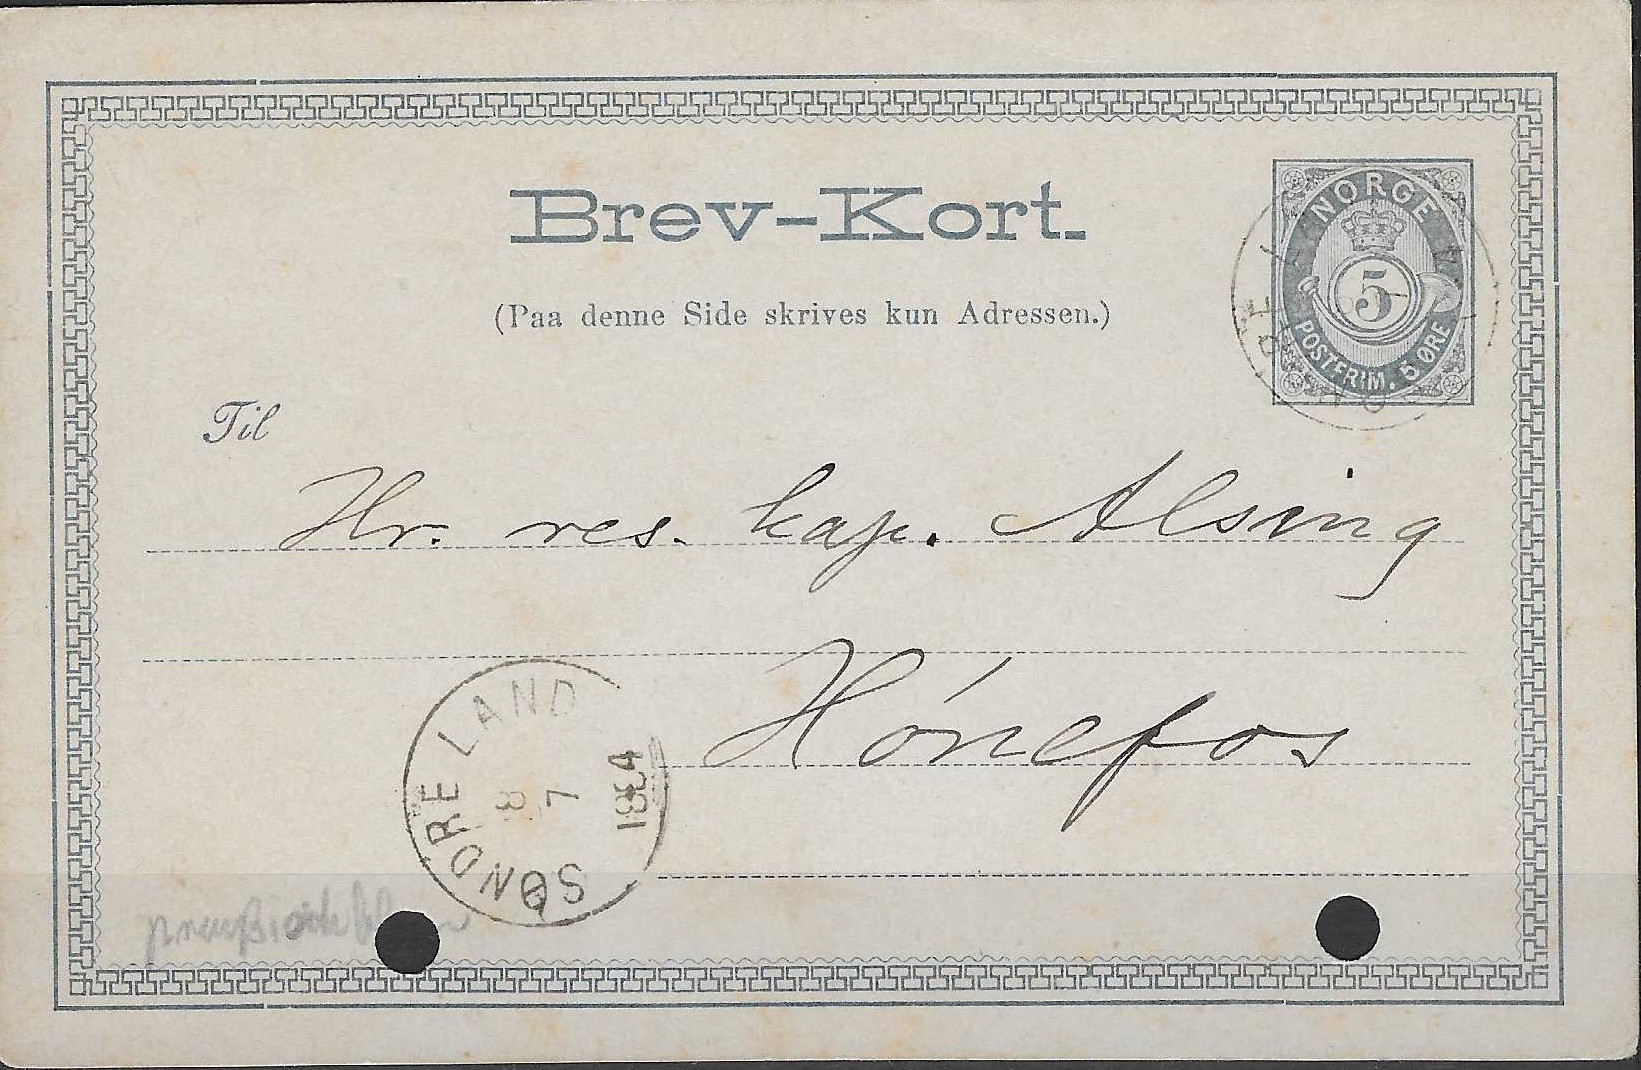 Brev-Kort.
NORGE
5
POSTFRIM. 5 ØRE
(Paa denne Side skrives kun Adressen.)
Til
Hr. res. kap. Alsing
Hónefos
SØNDRE LAND
8
7
1884